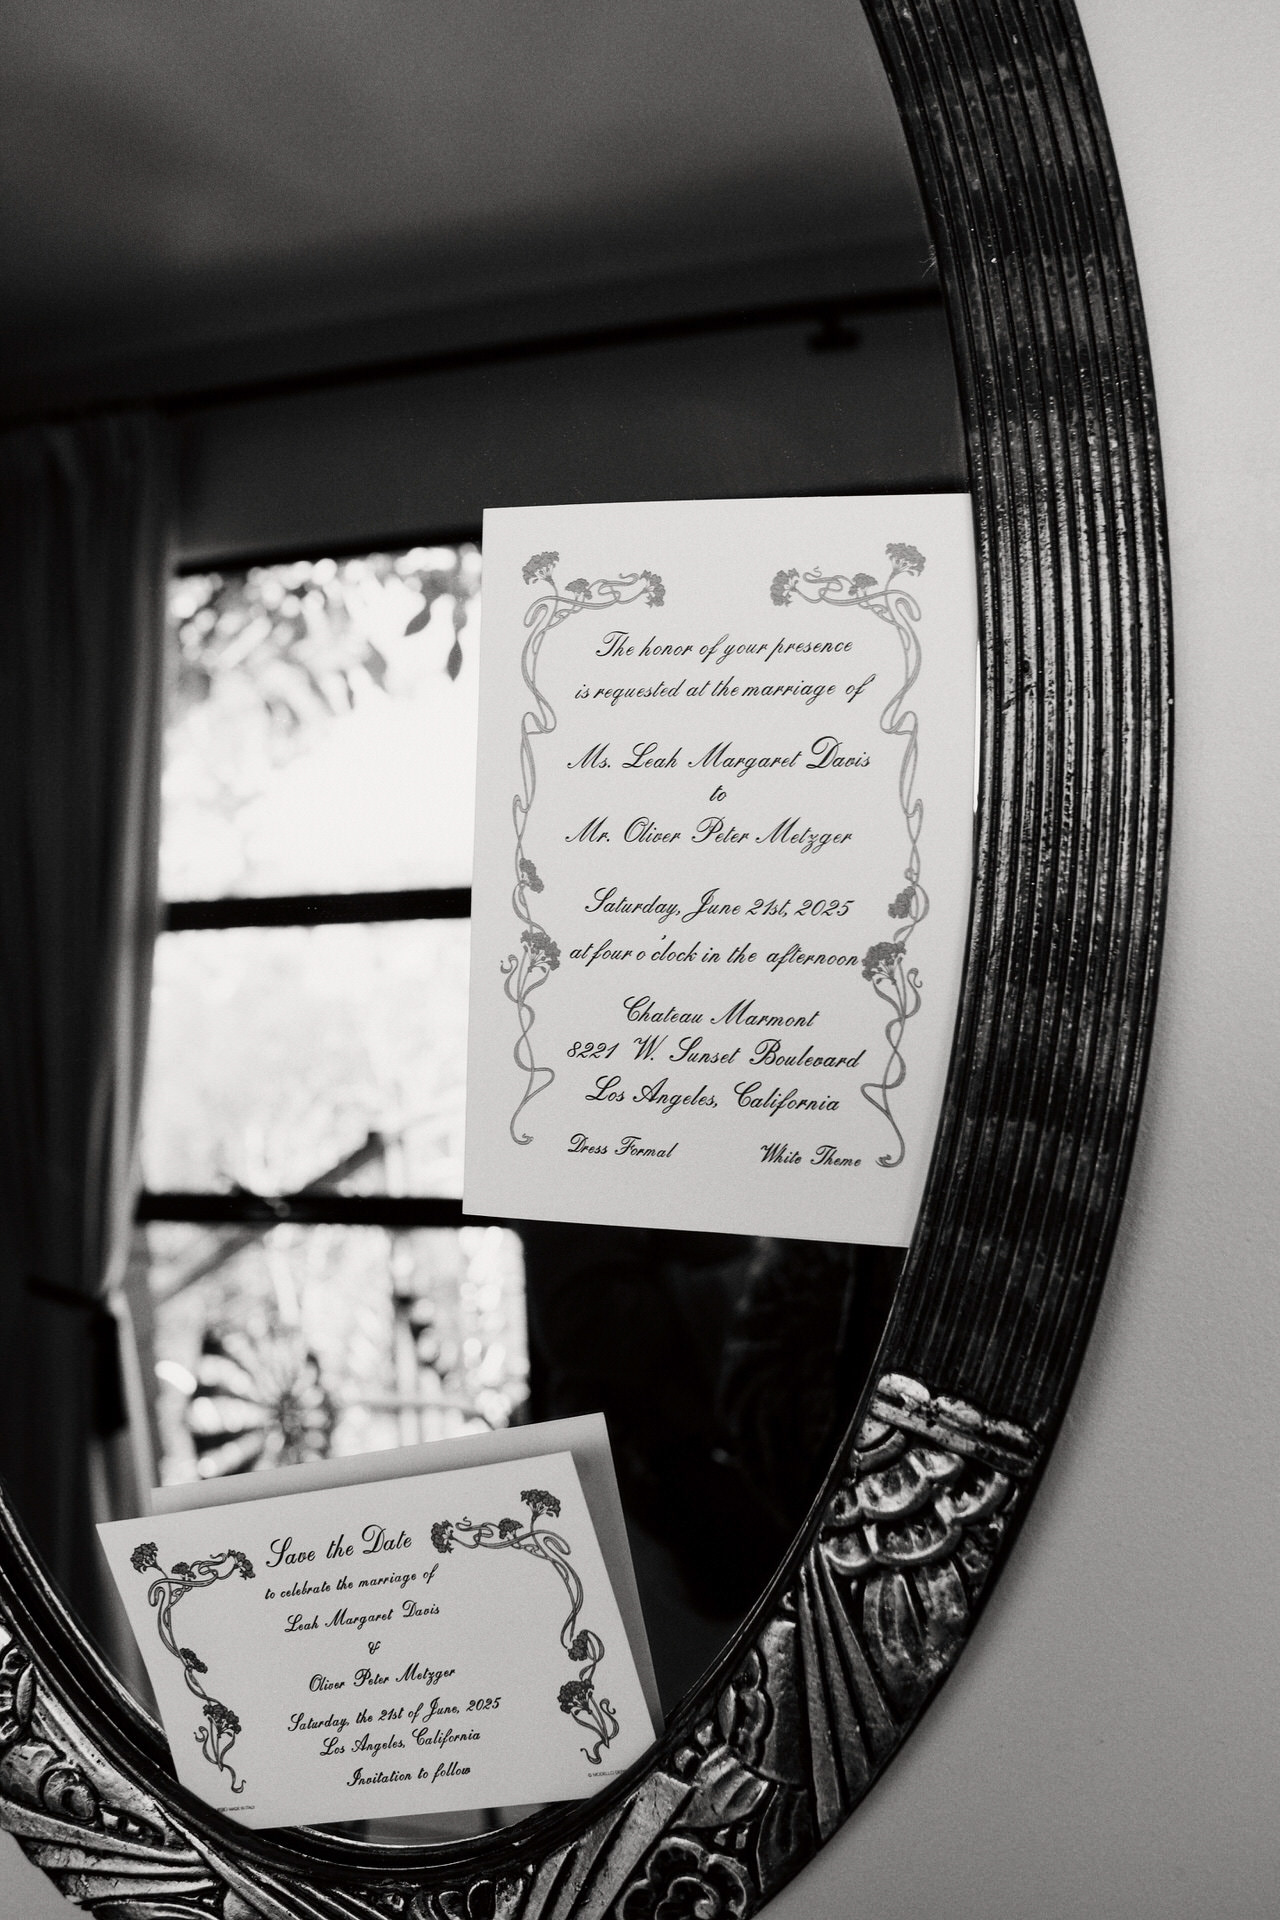 The honor of your presence
is requested at the marriage of
Ms. Leah Margaret Davis
to
Mr. Oliver Peter Metzger
Saturday, June 21st, 2025
at four o'clock in the afternoon
Chateau Marmont
8221 W. Sunset Boulevard
Los Angeles, California
Dress Formal White Theme
Save the Date
to celebrate the marriage of
Leah Margaret Davis
&
Oliver Peter Metzger
Saturday, the 21st of June, 2025
Los Angeles, California
Invitation to follow
MADE IN ITALY